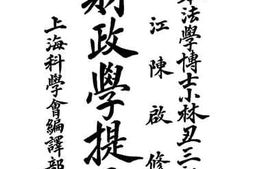 法學博士小林丑三
江陳啟修
財政學提
上海科學會編譯部